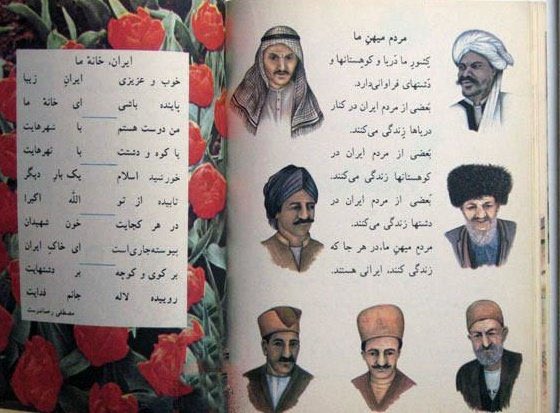 مردم میهنِ ما
کِشورِ ما دَریا و کوهستانها و
دَشتهای فَراوانی‌دارد.
بَعضی از مردم ایران در کنار
دریاها زِندگی می‌کنند.
بَعضی از مردم ایران در
کوهستانها زِندگی می‌کنند.
بَعضی از مردم ایران در
دشتها زِندگی می‌کنند.
مردمِ میهنِ ما،در هر جا که
زِندگی کنند، ایرانی هستند.
ایران، خانهٔ ما
خوب و عزیزی ایرانِ زیبا
پاینده باشی ای خانهٔ ما
من دوست هستم با شهرهایت
با کوه و دشتت با نهرهایت
خورشیدِ اسلام یک بارِ دیگر
تابیده از تو الله اکبر!
در هر کجایت خونِ شهیدان
پیوسته‌جاری‌است ای خاکِ ایران
بر کوی و کوچه بر دشتهایت
روییده لاله جانم فدایت
مصطفی رحماندوست